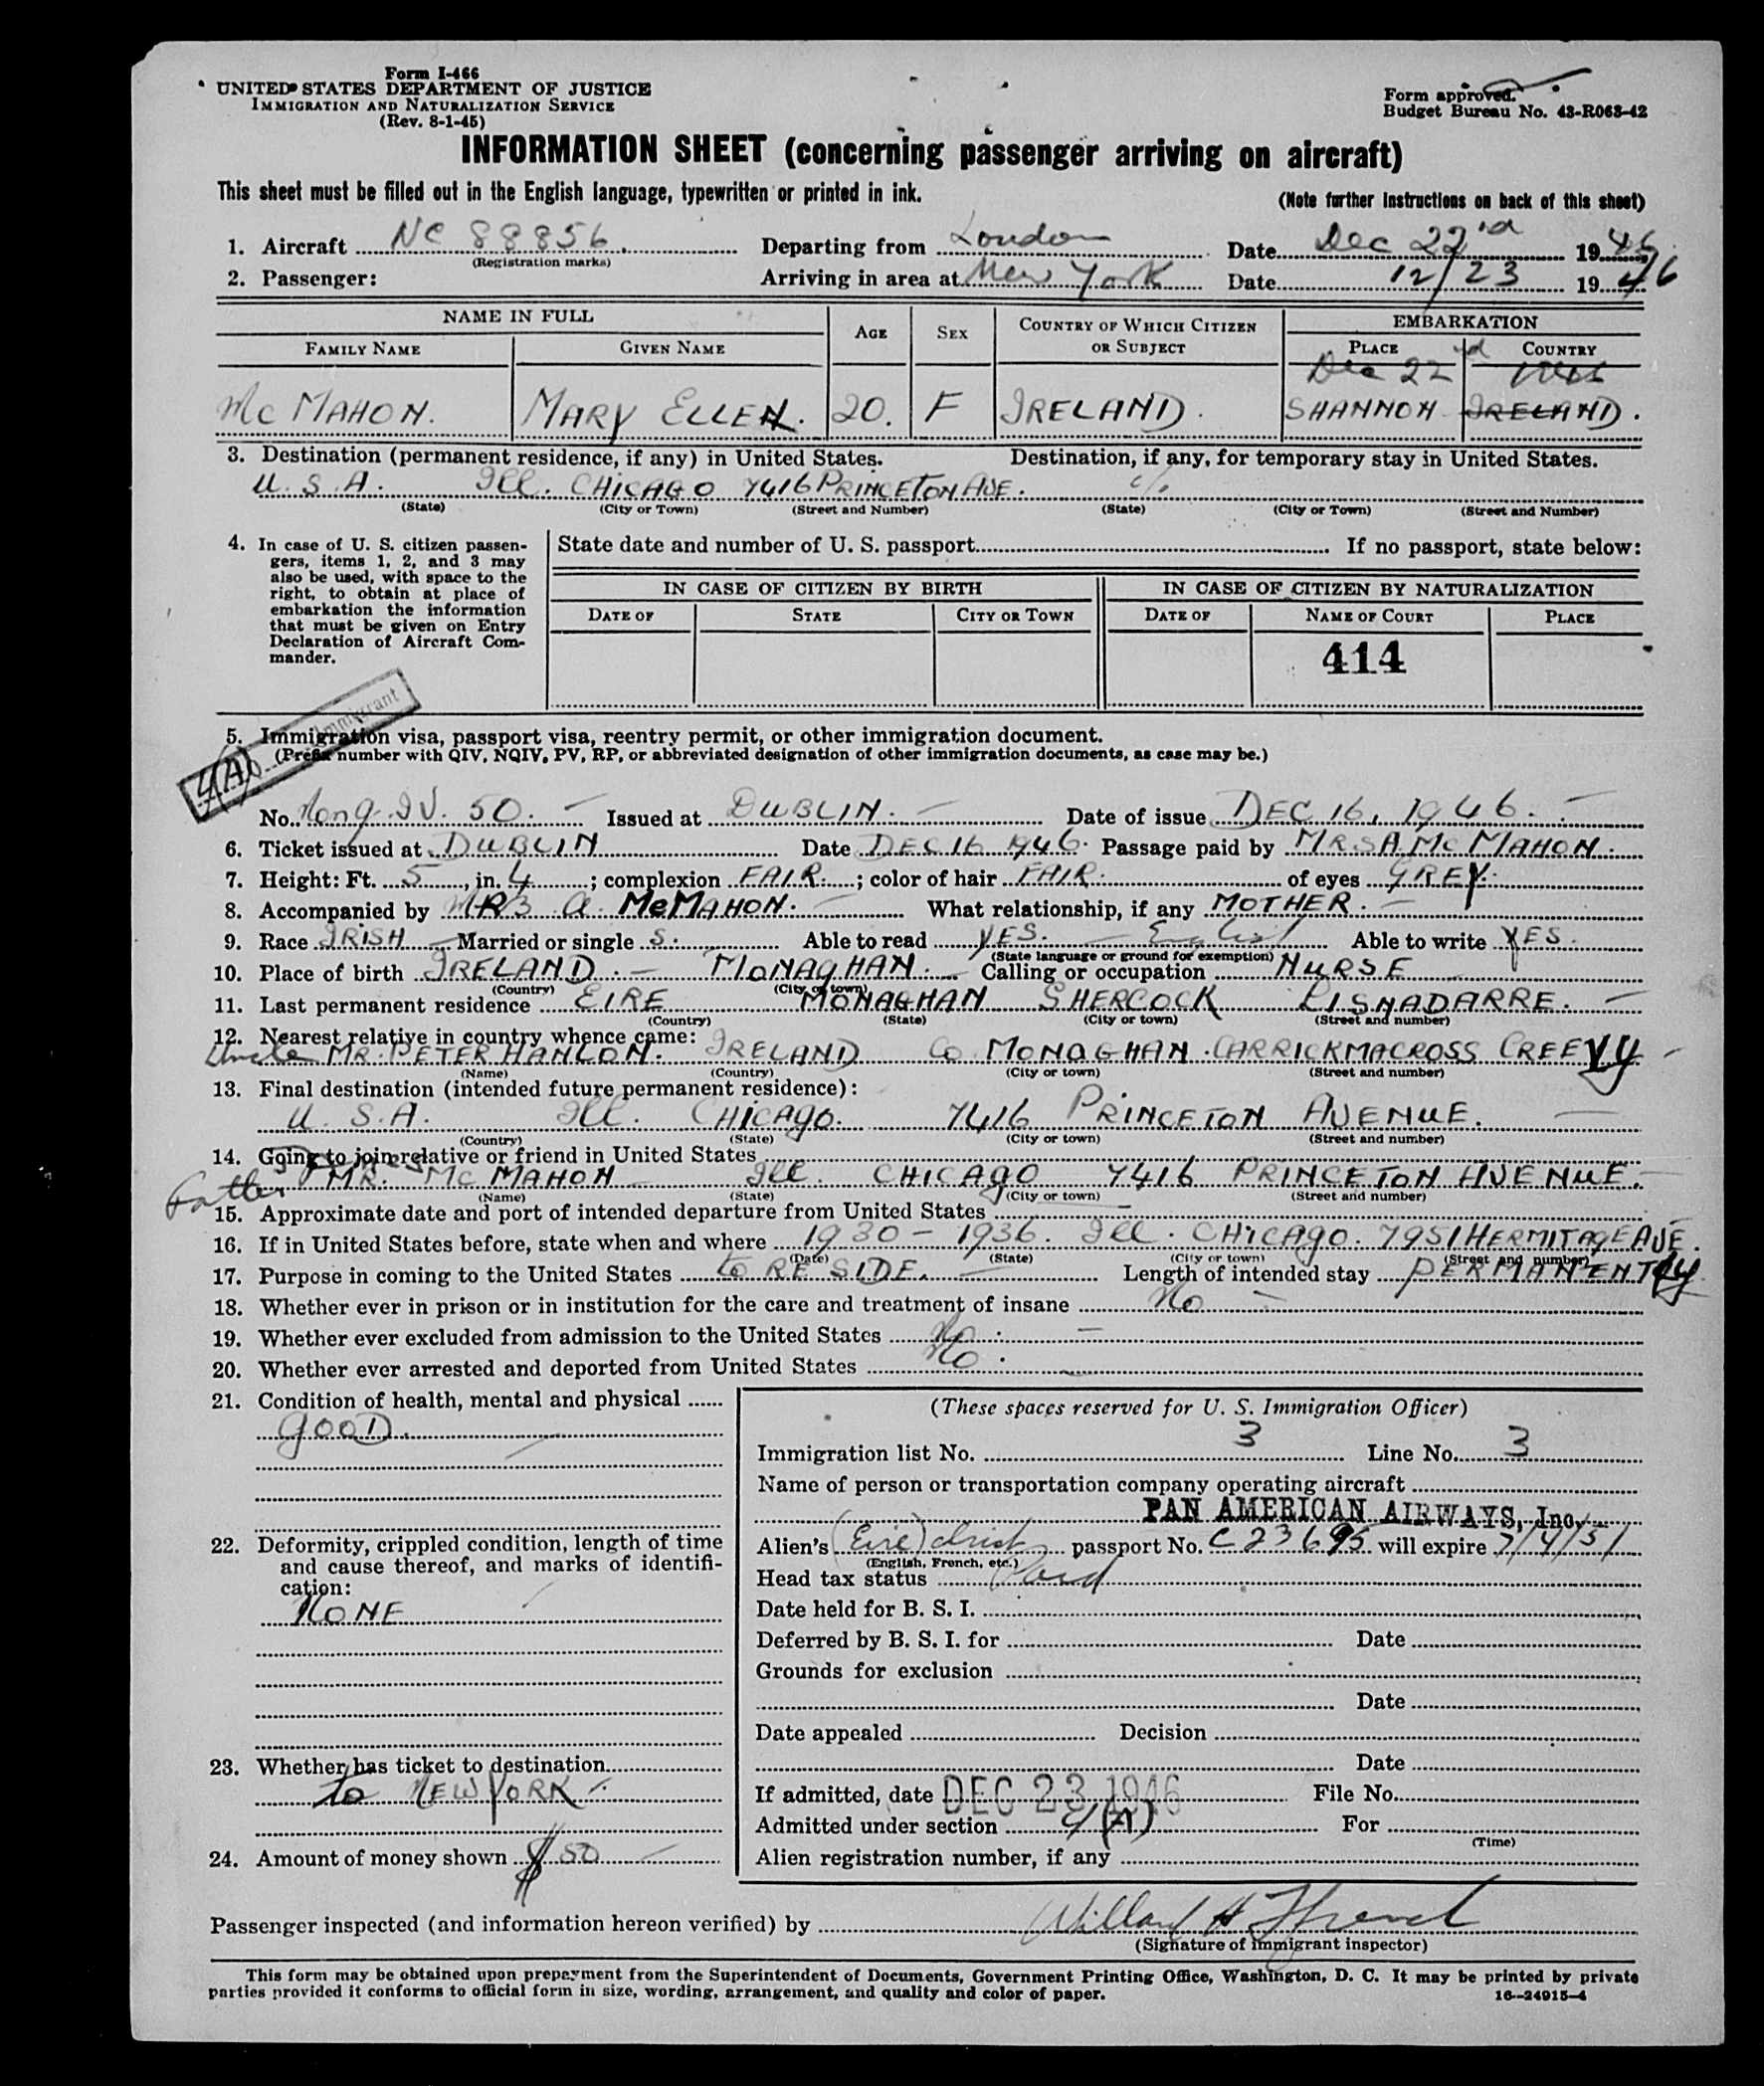 Form I-466
UNITED STATES DEPARTMENT OF JUSTICE
IMMIGRATION AND NATURALIZATION SERVICE
(Rev. 8-1-45)
Form approved.
Budget Bureau No. 43-R063-42
INFORMATION SHEET (concerning passenger arriving on aircraft)
This sheet must be filled out in the English language, typewritten or printed in ink.
(Note further instructions on back of this sheet)
1. Aircraft NC 88856. Departing from London Date Dec 22nd 1946
(Registration marks)
2. Passenger: Arriving in area at New York Date 12/23 1946
NAME IN FULL AGE SEX COUNTRY OF WHICH CITIZEN OR SUBJECT EMBARKATION
FAMILY NAME GIVEN NAME PLACE COUNTRY
Dec 22
Mc MAHON. MARY ELLEN. 20. F IRELAND. SHANNON IRELAND.
3. Destination (permanent residence, if any) in United States. Destination, if any, for temporary stay in United States.
U.S.A. Ill. CHICAGO 7416 PRINCETON AVE. c/o
(State) (City or Town) (Street and Number) (State) (City or Town) (Street and Number)
4. In case of U. S. citizen passen-
gers, items 1, 2, and 3 may
also be used, with space to the
right, to obtain at place of
embarkation the information
that must be given on Entry
Declaration of Aircraft Com-
mander.
State date and number of U. S. passport If no passport, state below:
IN CASE OF CITIZEN BY BIRTH IN CASE OF CITIZEN BY NATURALIZATION
DATE OF STATE CITY OR TOWN DATE OF NAME OF COURT PLACE
414
Immigrant
4(A)
5. Immigration visa, passport visa, reentry permit, or other immigration document.
(Prefix number with QIV, NQIV, PV, RP, or abbreviated designation of other immigration documents, as case may be.)
No. Nonq. IV. 50. Issued at DUBLIN. Date of issue DEC 16, 1946.
6. Ticket issued at DUBLIN Date DEC 16 1946. Passage paid by MRS A. Mc MAHON.
7. Height: Ft. 5, in. 4; complexion FAIR.; color of hair FAIR. of eyes GREY.
8. Accompanied by MRS A. McMAHON. What relationship, if any MOTHER.
9. Race IRISH Married or single S. Able to read YES. English Able to write YES.
(State language or ground for exemption)
10. Place of birth IRELAND. MONAGHAN. Calling or occupation NURSE
(Country) (City or town)
11. Last permanent residence EIRE MONAGHAN SHERCOCK LISNADARRE.
(Country) (State) (City or town) (Street and number)
12. Nearest relative in country whence came:
Uncle MR. PETER HANLON. IRELAND Co MONAGHAN. CARRICKMACROSS CREEVY
(Name) (Country) (City or town) (Street and number)
13. Final destination (intended future permanent residence):
U.S.A. Ill. CHICAGO. 7416 PRINCETON AVENUE.
(Country) (State) (City or town) (Street and number)
14. Going to join relative or friend in United States
Father MR. Mc MAHON Ill. CHICAGO 7416 PRINCETON AVENUE.
(Name) (State) (City or town) (Street and number)
15. Approximate date and port of intended departure from United States
16. If in United States before, state when and where 1930 - 1936. Ill. CHICAGO. 7951 HERMITAGE AVE.
(Date) (State) (City or town) (Street and number)
17. Purpose in coming to the United States to RESIDE. Length of intended stay PERMANENTLY
18. Whether ever in prison or in institution for the care and treatment of insane No
19. Whether ever excluded from admission to the United States No.
20. Whether ever arrested and deported from United States No.
21. Condition of health, mental and physical
GOOD.
22. Deformity, crippled condition, length of time
and cause thereof, and marks of identifi-
cation:
NONE
23. Whether has ticket to destination
to NEW YORK
24. Amount of money shown $50
(These spaces reserved for U. S. Immigration Officer)
Immigration list No. 3 Line No. 3
Name of person or transportation company operating aircraft
PAN AMERICAN AIRWAYS, Inc.
Alien's (Eire) Irish passport No. C23695 will expire 7/4/51
(English, French, etc.)
Head tax status Paid
Date held for B. S. I.
Deferred by B. S. I. for Date
Grounds for exclusion
Date
Date appealed Decision
Date
If admitted, date DEC 23 1946 File No.
Admitted under section 4(A) For
(Time)
Alien registration number, if any
Passenger inspected (and information hereon verified) by Willard H French
(Signature of immigrant inspector)
This form may be obtained upon prepayment from the Superintendent of Documents, Government Printing Office, Washington, D. C. It may be printed by private
parties provided it conforms to official form in size, wording, arrangement, and quality and color of paper. 16—24915-4